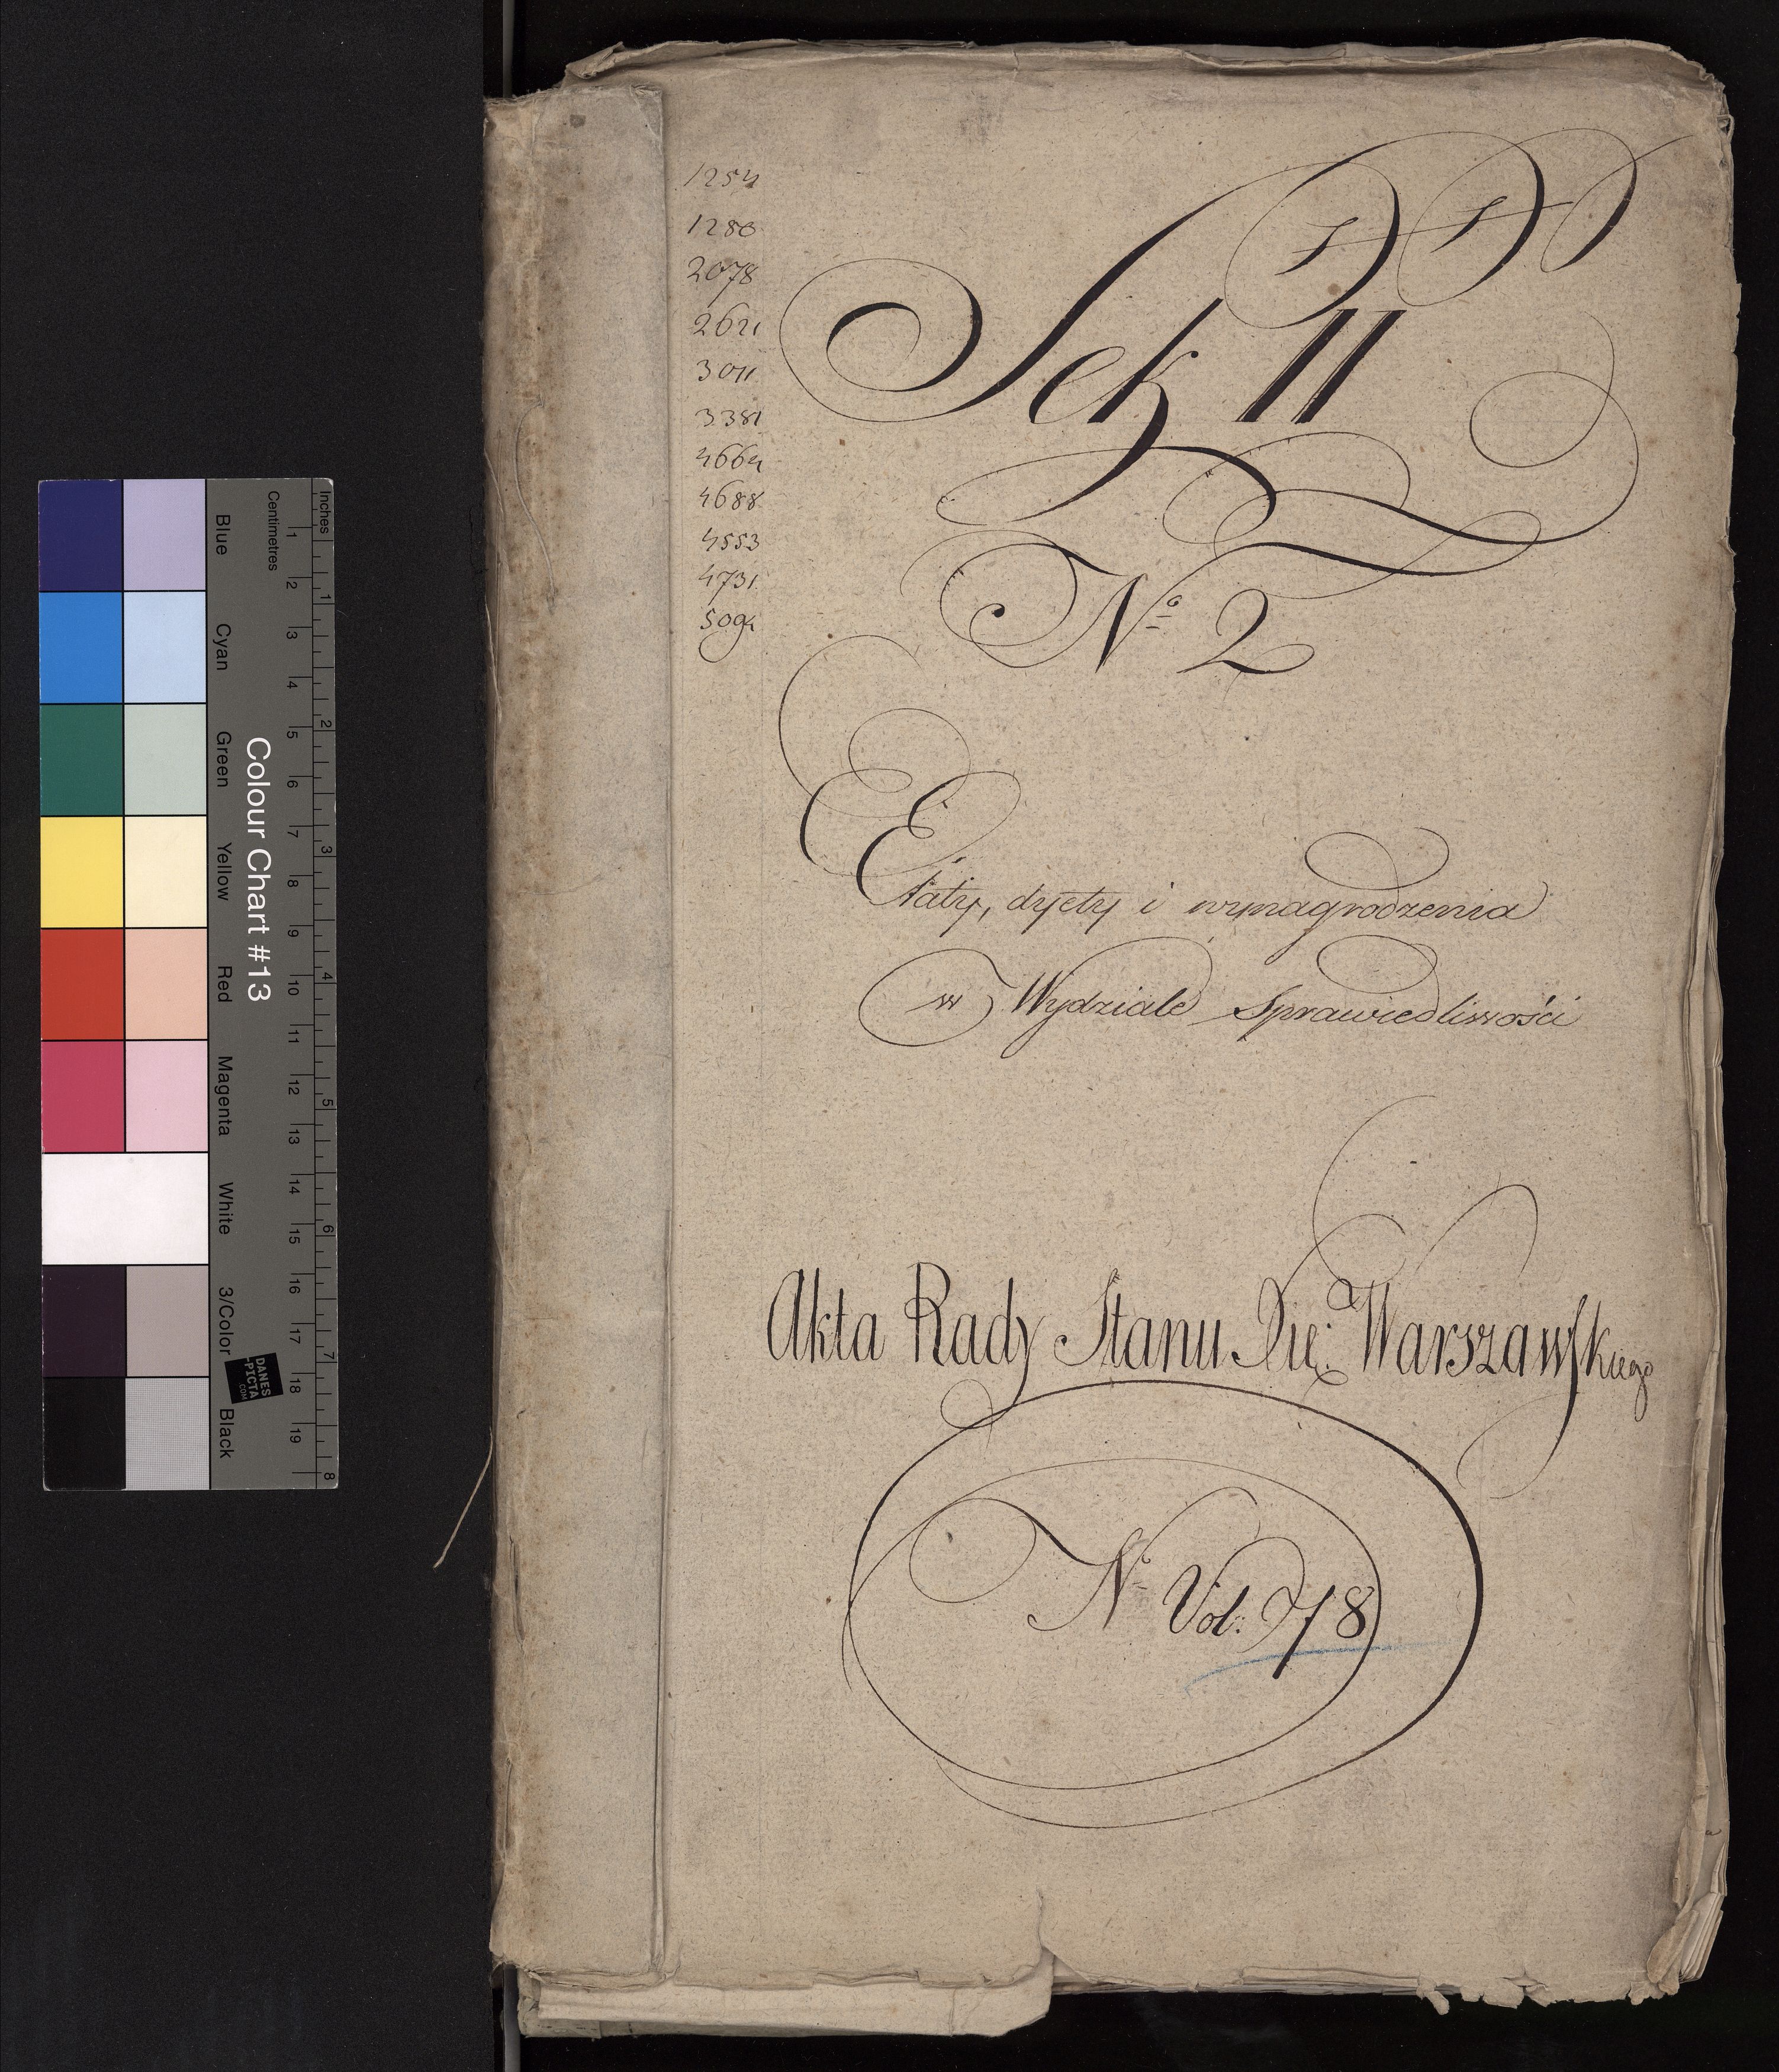 1254
1280
2078
2621
3011
3381
4664
4688
4553
4731
5094
Sek II
No 2
Etaty, dyety i wynagrodzenia
w Wydziale Sprawiedliwości
Akta Rady Stanu Xię: Warszawskiego
N Vol: 78
Inches
Centimetres
1 2 3 4 5 6 7 8
1 2 3 4 5 6 7 8 9 10 11 12 13 14 15 16 17 18 19
Colour Chart #13
Blue
Cyan
Green
Yellow
Red
Magenta
White
3/Color
Black
DANES
-PICTA
.COM